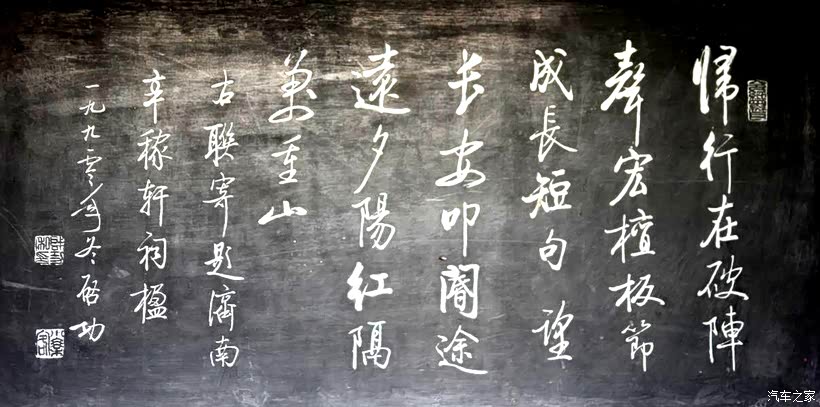 歸行在破陣
聲宏檀板節
成長短句 望
長安叩閽途
遠夕陽紅隔
萬重山
右聯寄題濟南
辛稼軒祠楹
一九九零年冬啓功
汽车之家